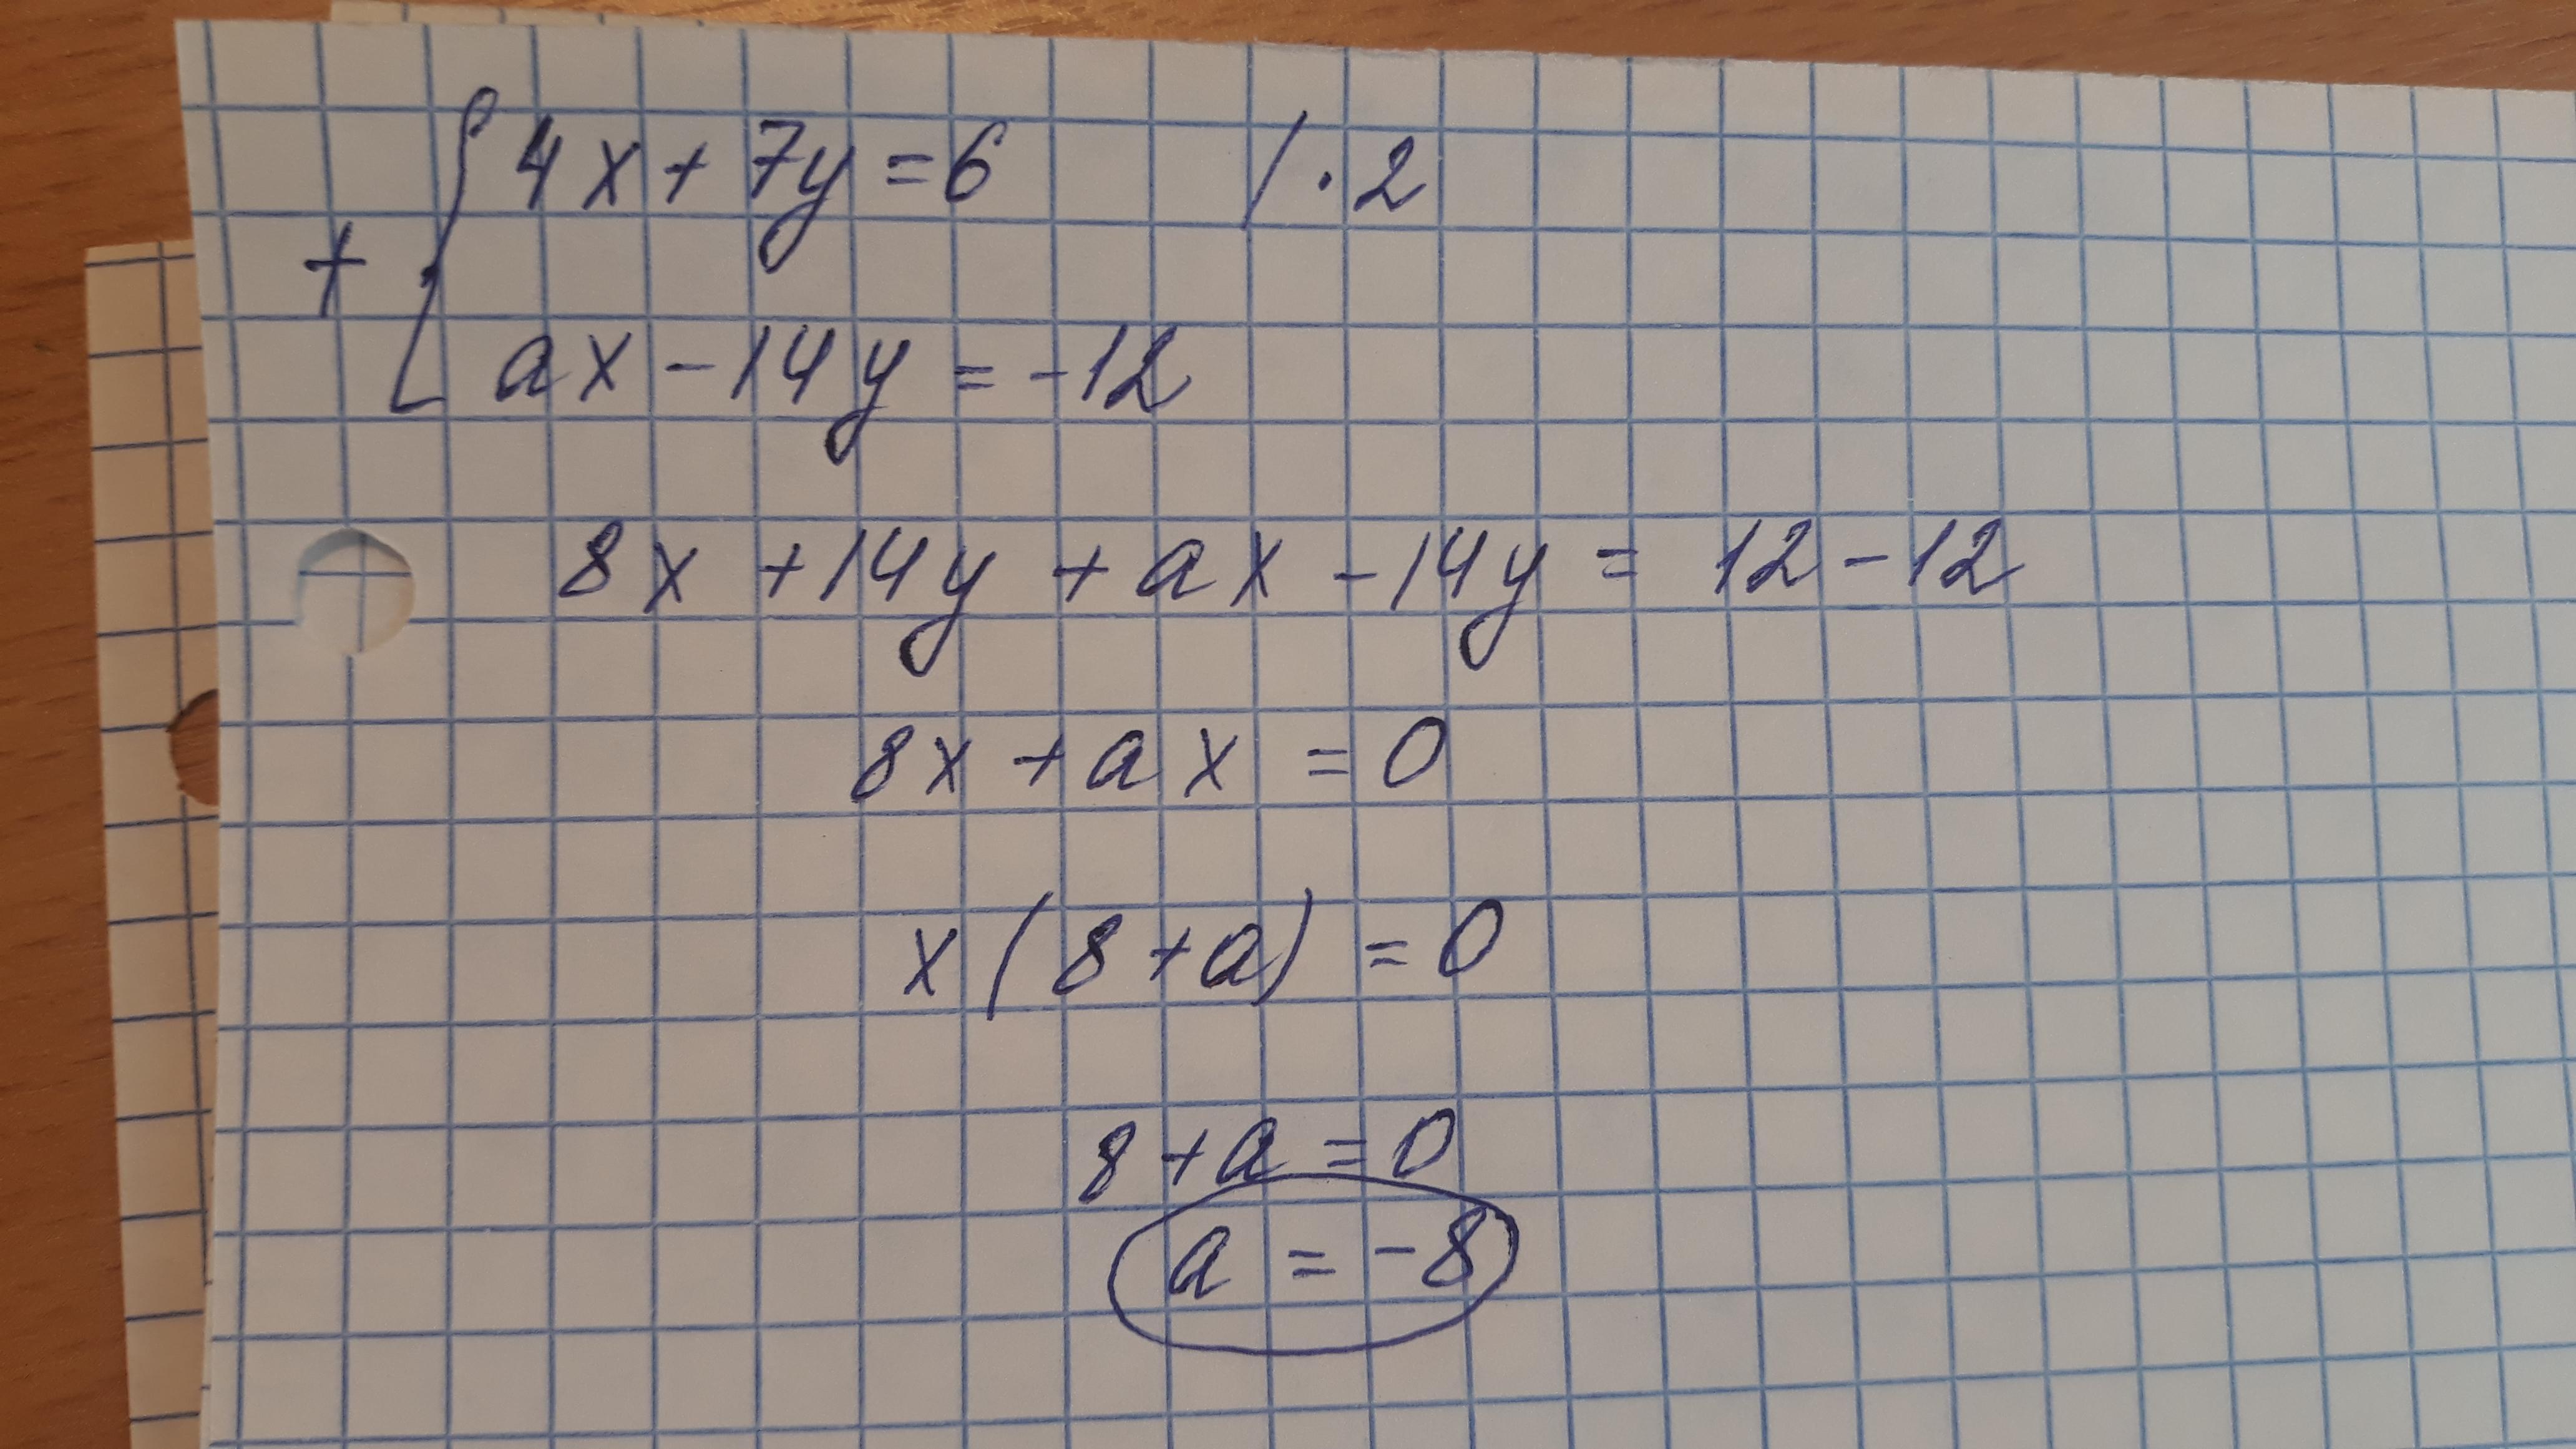 4x + 7y = 6 / · 2
+
ax - 14y = -12
8x + 14y + ax - 14y = 12 - 12
8x + ax = 0
x (8 + a) = 0
8 + a = 0
a = -8